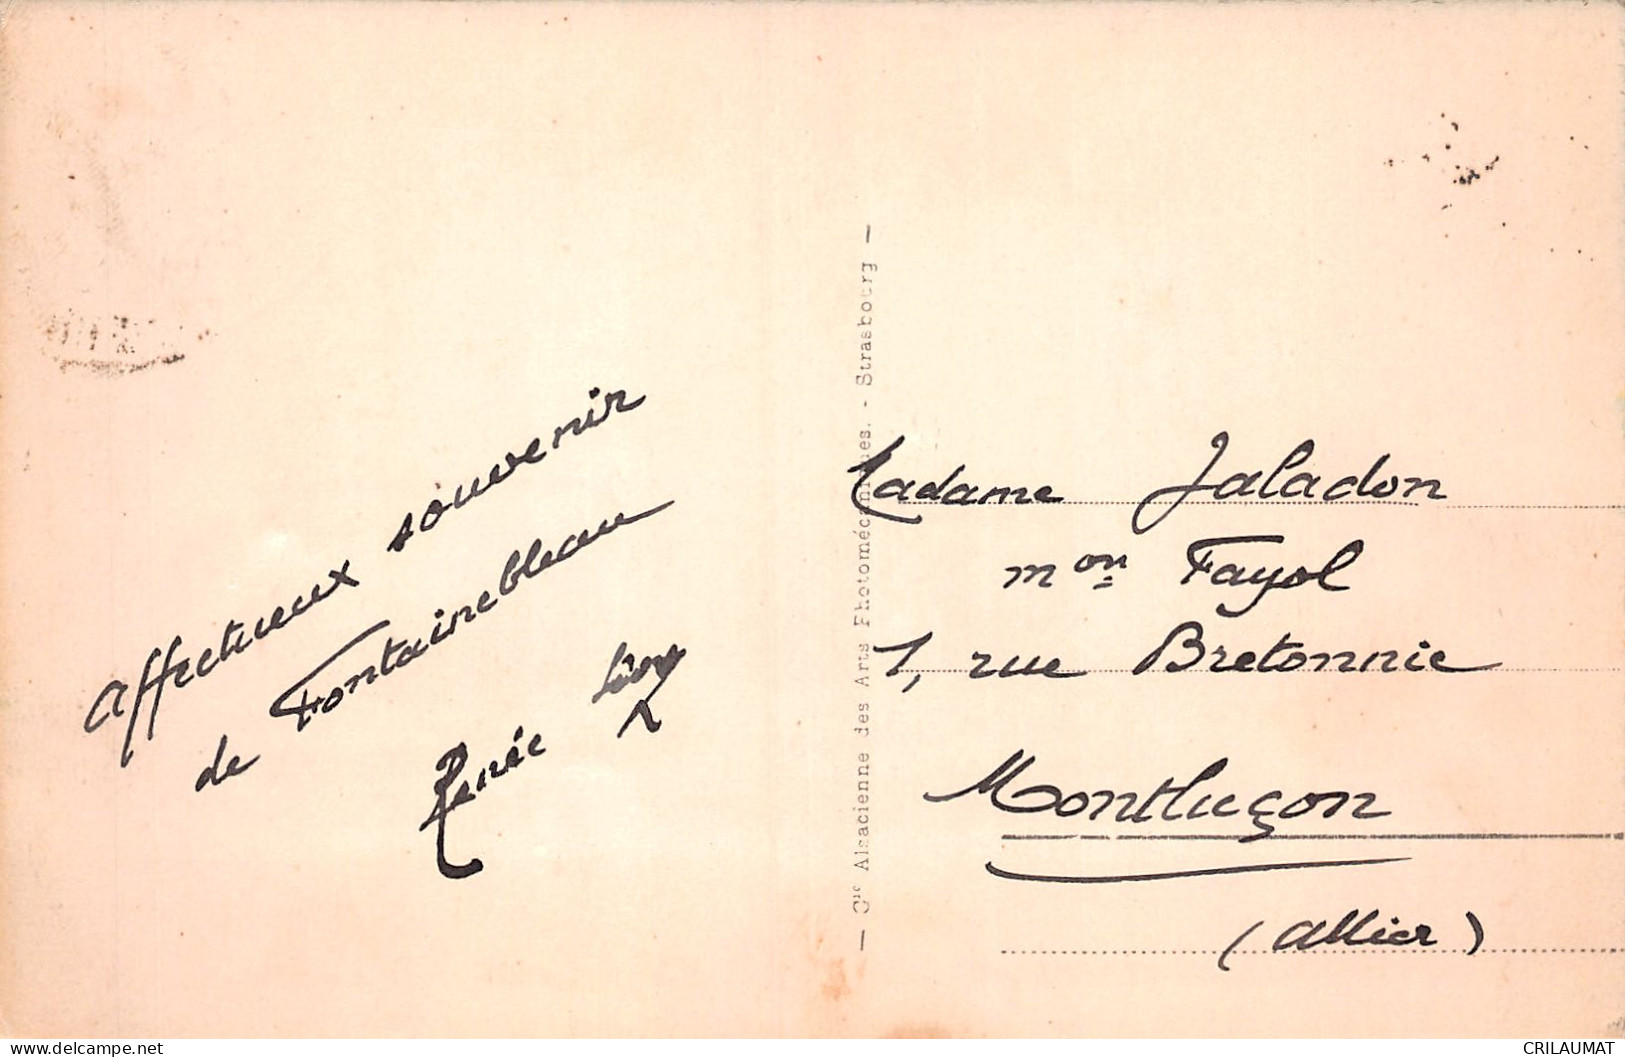 Affectueux souvenir
de Fontainebleau
Renée
— Cie Alsacienne des Arts Photomécaniques. - Strasbourg —
Madame Jaladon
mon Fayol
1, rue Bretonnie
Montluçon
(Allier)
www.delcampe.net
CRILAUMAT